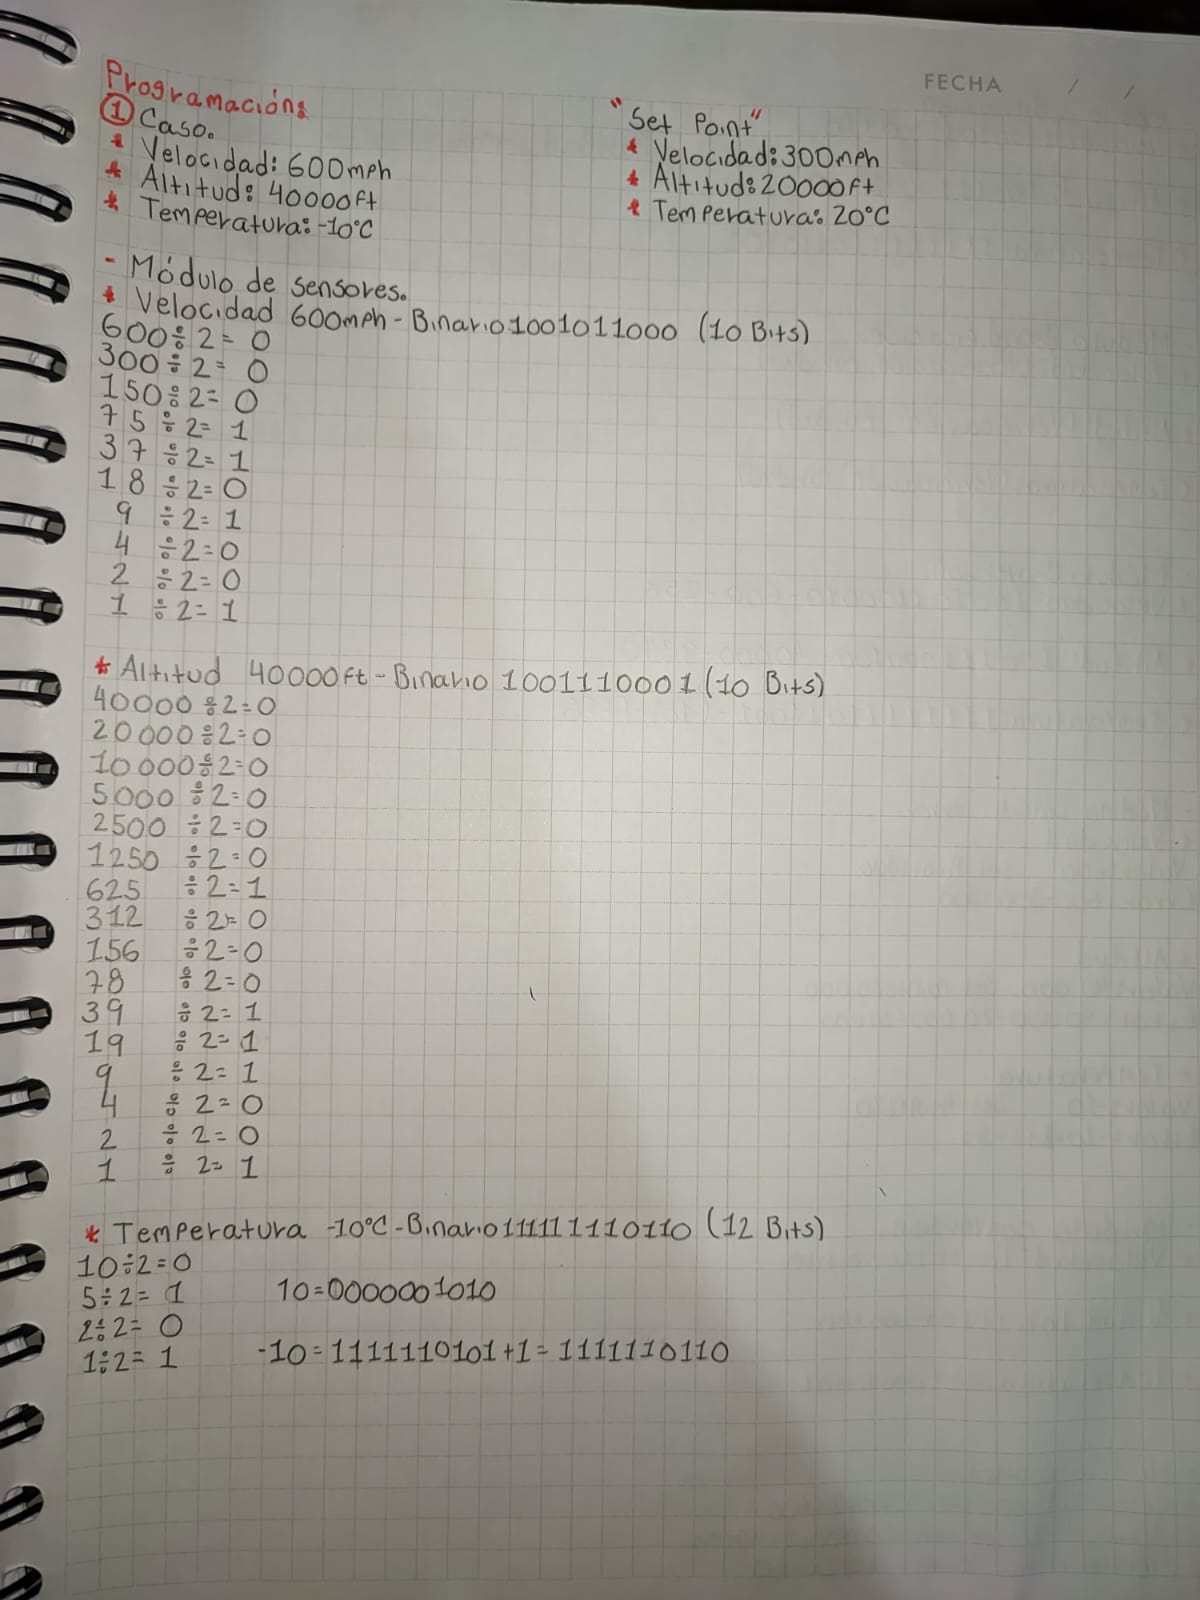 FECHA / /
Programación:
① Caso.
* Velocidad: 600mph
* Altitud: 40000ft
* Temperatura: -10°C
"Set Point"
* Velocidad: 300mph
* Altitud: 20000ft
* Temperatura: 20°C
- Módulo de sensores.
* Velocidad 600mph - Binario 1001011000 (10 Bits)
600÷2= 0
300÷2= 0
150÷2= 0
75÷2= 1
37÷2= 1
18÷2= 0
9÷2= 1
4÷2= 0
2÷2= 0
1÷2= 1
* Altitud 40000ft - Binario 1001110001 (10 Bits)
40000÷2=0
20000÷2=0
10000÷2=0
5000÷2=0
2500÷2=0
1250÷2=0
625÷2=1
312÷2=0
156÷2=0
78÷2=0
39÷2=1
19÷2=1
9÷2=1
4÷2=0
2÷2=0
1÷2=1
* Temperatura -10°C - Binario 111111110110 (12 Bits)
10÷2=0
5÷2= 1 10=0000001010
2÷2= 0
1÷2= 1 -10=1111110101+1=1111110110